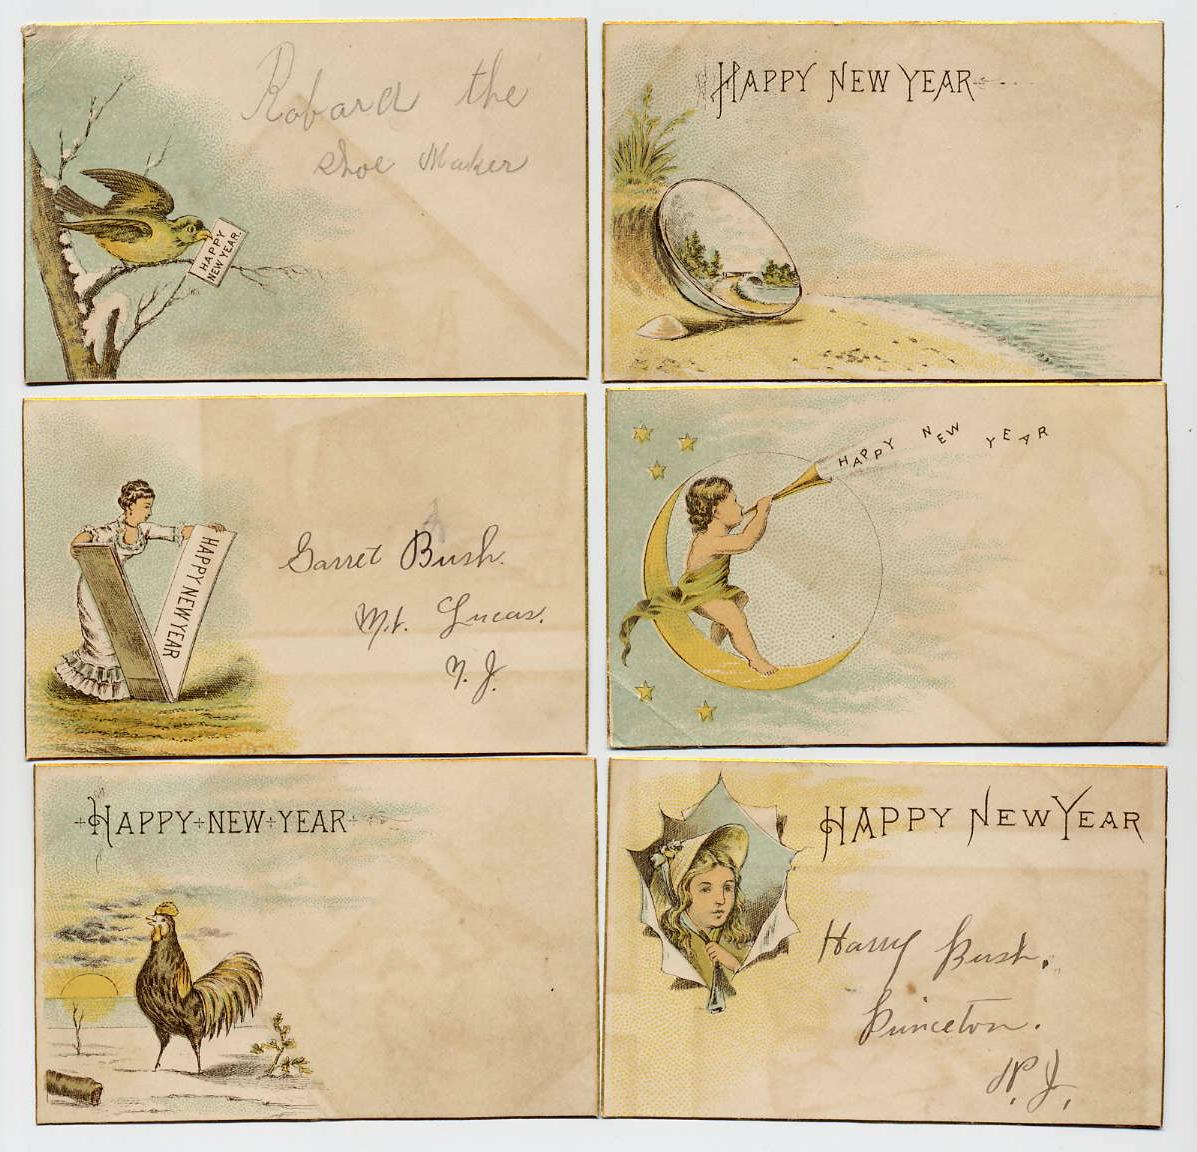 Robard the
Shoe Maker
HAPPY
NEW YEAR.
HAPPY NEW YEAR
HAPPY NEW YEAR
Garret Bush.
Mt. Lucas.
N. J.
HAPPY NEW YEAR
HAPPY NEW YEAR
HAPPY NEW YEAR
Harry Bush.
Princeton.
N. J.